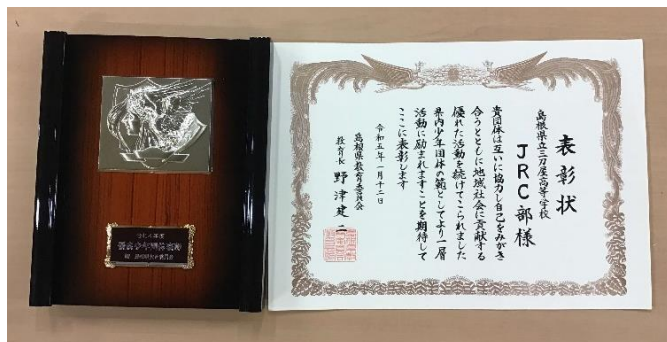 表彰状
島根県立三刀屋高等学校
JRC部様
貴団体は互いに協力し自己をみがき
合うとともに地域社会に貢献する
優れた活動を続けてこられました
県内少年団体の範としてより一層
活動に励まれますことを期待して
ここに表彰します
令和五年一月十二日
島根県教育委員会
教育長 野津建二